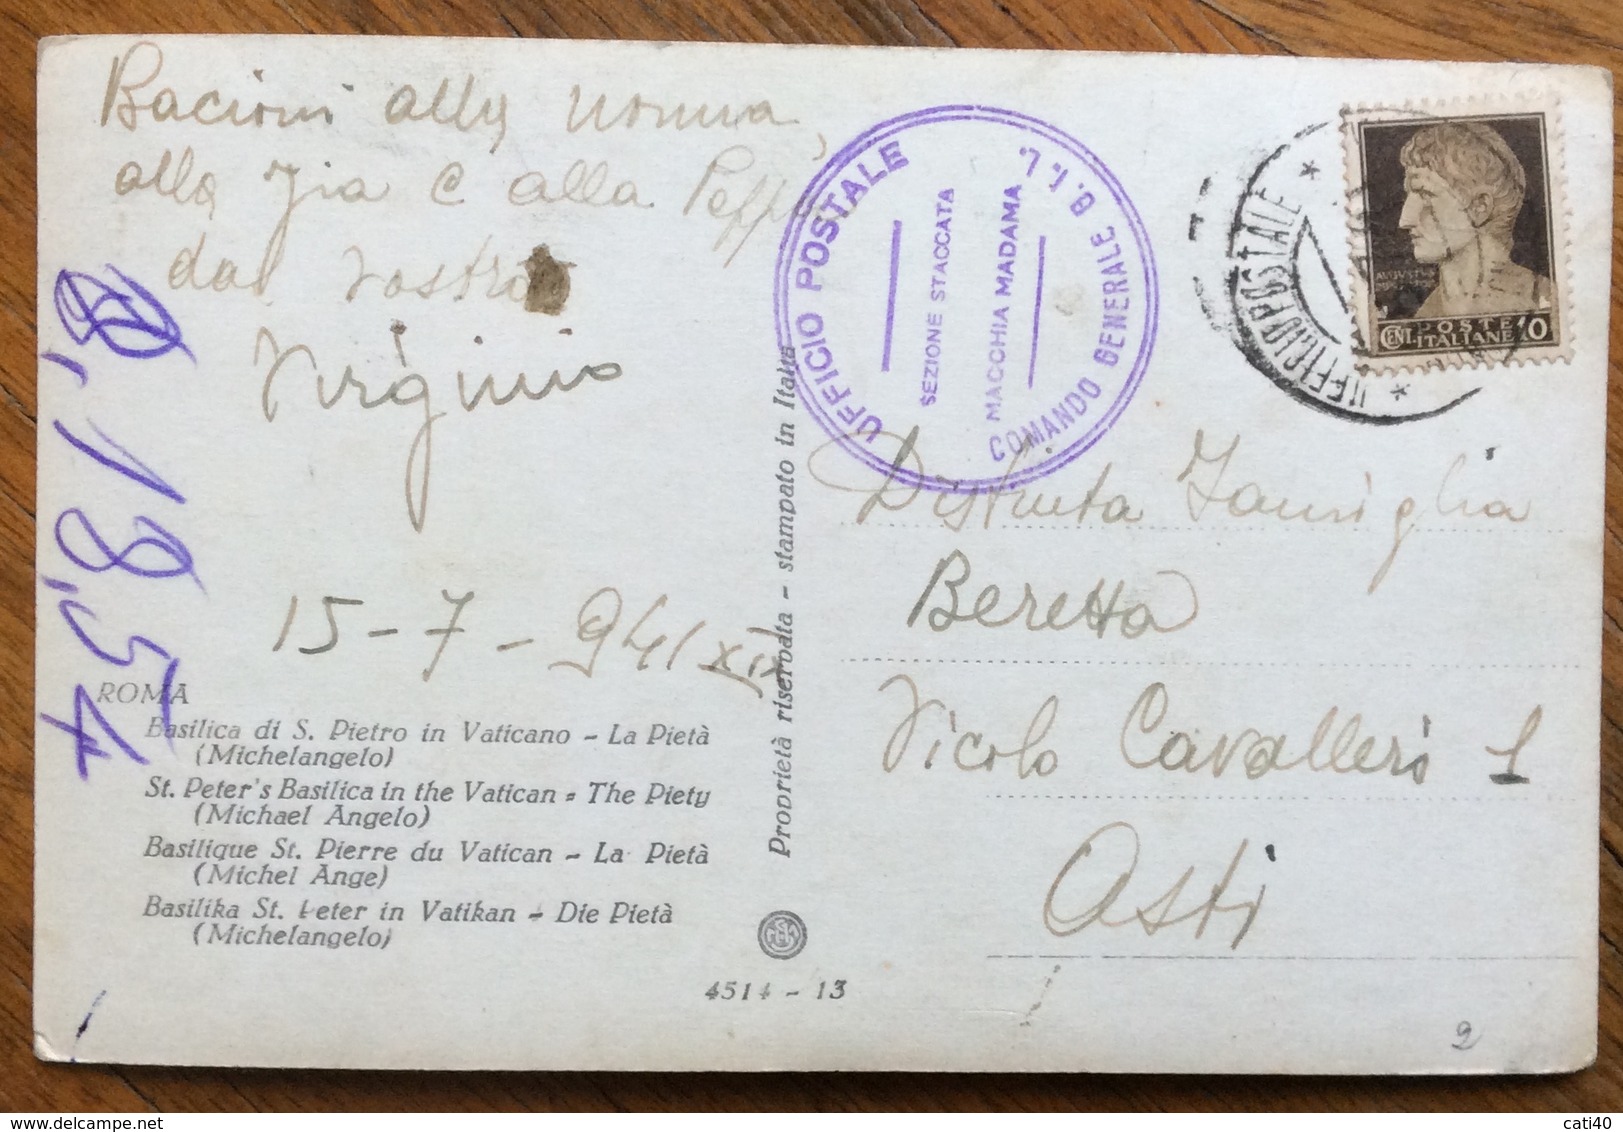 Bacioni alla nonna,
alla zia e alla
dal vostro
Virginio
15-7-941 XIX
ROMA
Basilica di S. Pietro in Vaticano - La Pietà
(Michelangelo)
St. Peter's Basilica in the Vatican - The Piety
(Michael Angelo)
Basilique St. Pierre du Vatican - La Pietà
(Michel Ange)
Basilika St. Peter in Vatikan - Die Pietà
(Michelangelo)
4514 - 13
Proprietà riservata - stampato in Italia
UFFICIO POSTALE
SEZIONE STACCATA
MACCHIA MADAMA
COMANDO GENERALE G.I.L.
UFFICIO POSTALE
CENT. 10
POSTE
ITALIANE
Distinta Famiglia
Beretta
Vicolo Cavalleri 1
Asti
2
cati40